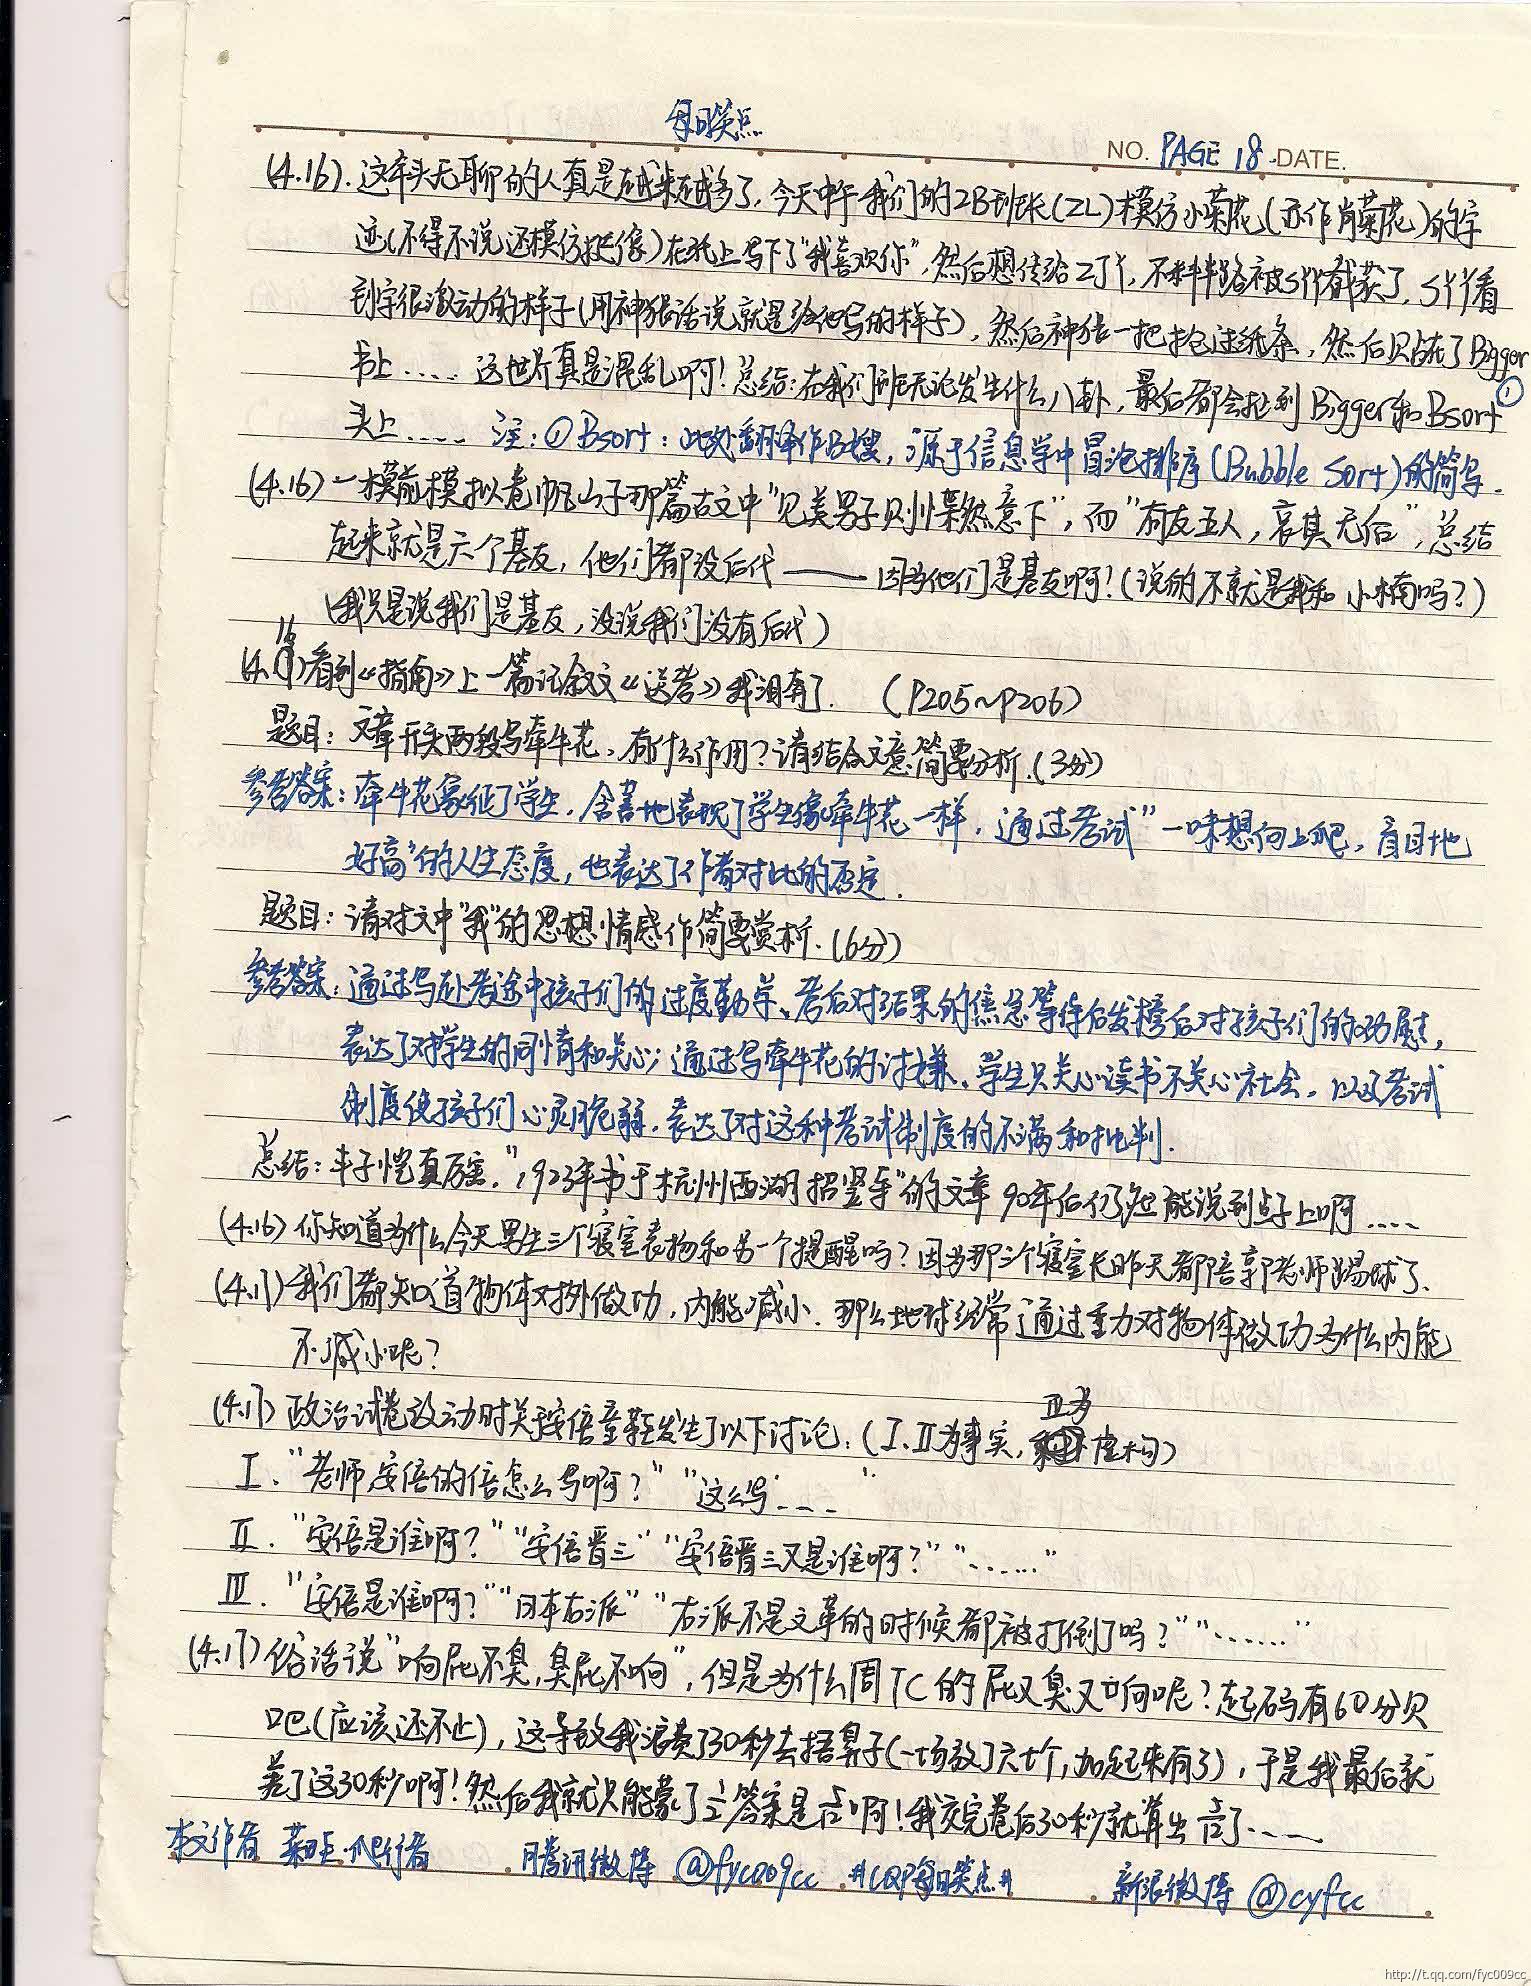 每日笑点
NO. PAGE 18 DATE.
(4.16). 这年头无聊的人真是越来越多了，今天中午我们的2B班长(ZL)模仿小菊花(亦作肖菊花)的字
迹(不得不说还模仿挺像)在纸上写下了"我喜欢你"，然后想传给ZJY，不料半路被SYY截获了，SYY看
到字很激动的样子(用神猴话说就是给他写的样子)，然后神猴一把抢过纸条，然后贴在了Bigger
书上..... 这世界真是混乱啊！总结：在我们班无论发生什么八卦，最后都会扯到Bigger和Bsort①
头上..... 注：①Bsort：此处翻译作B搜，源于信息学中冒泡排序(Bubble Sort)的简写.
(4.16) 一模前模拟卷帆山子那篇古文中"见美男子则惵然意下"，而"有友五人，哀其无后"，总结
起来就是六个基友，他们都没后代——因为他们是基友啊！(说的不就是我和小楠吗？)
(我只是说我们是基友，没说我们没有后代)
(4.16)看到《指南》上一篇记叙文《送考》我泪奔了. (P205~P206)
题目：文章开头两段写牵牛花，有什么作用？请结合文意简要分析.(3分)
参考答案：牵牛花象征了学生，含蓄地表现了学生像牵牛花一样，通过考试"一味想向上爬，盲目地
好高"的人生态度，也表达了作者对此的否定.
题目：请对文中"我"的思想情感作简要赏析.(6分)
参考答案：通过写赴考途中孩子们的过度勤学、考后对结果的焦急等待后发榜后对孩子们的劝慰，
表达了对学生的同情和关心；通过写牵牛花的讨嫌、学生只关心读书不关心社会，以及考试
制度使孩子们心灵脆弱，表达了对这种考试制度的不满和批判.
总结：丰子恺真厉害，"1923年书于杭州西湖招贤寺"的文章90年后仍然能说到点子上啊.....
(4.16) 你知道为什么今天男生三个寝室表扬和另一个提醒吗？因为那三个寝室长昨天都陪郭老师踢球了.
(4.17) 我们都知道物体对外做功，内能减小. 那么地球经常通过重力对物体做功为什么内能
不减小呢？
(4.17) 政治试卷放动时关于安倍童鞋发生了以下讨论：(I、II为事实，III为虚构)
I. "老师安倍的倍怎么写啊？" "这么写...."
II. "安倍是谁啊？" "安倍晋三" "安倍晋三又是谁啊？" "......"
III. "安倍是谁啊？" "日本右派" "右派不是文革的时候都被打倒了吗？" "......"
(4.17) 俗话说"响屁不臭，臭屁不响"，但是为什么周TC的屁又臭又响呢？起码有60分贝
吧(应该还不止)，这导致我浪费了30秒去捂鼻子(一场放了六七个，加起来有了)，于是我最后就
差了这30秒啊！然后我就只能蒙了1/2答案是5/12啊！我交完卷后30秒就算出5/12了.....
本文作者 菊草·爬行者 腾讯微博 @fyc009cc #CQP每日笑点# 新浪微博 @cyfcc
http://t.qq.com/fyc009cc